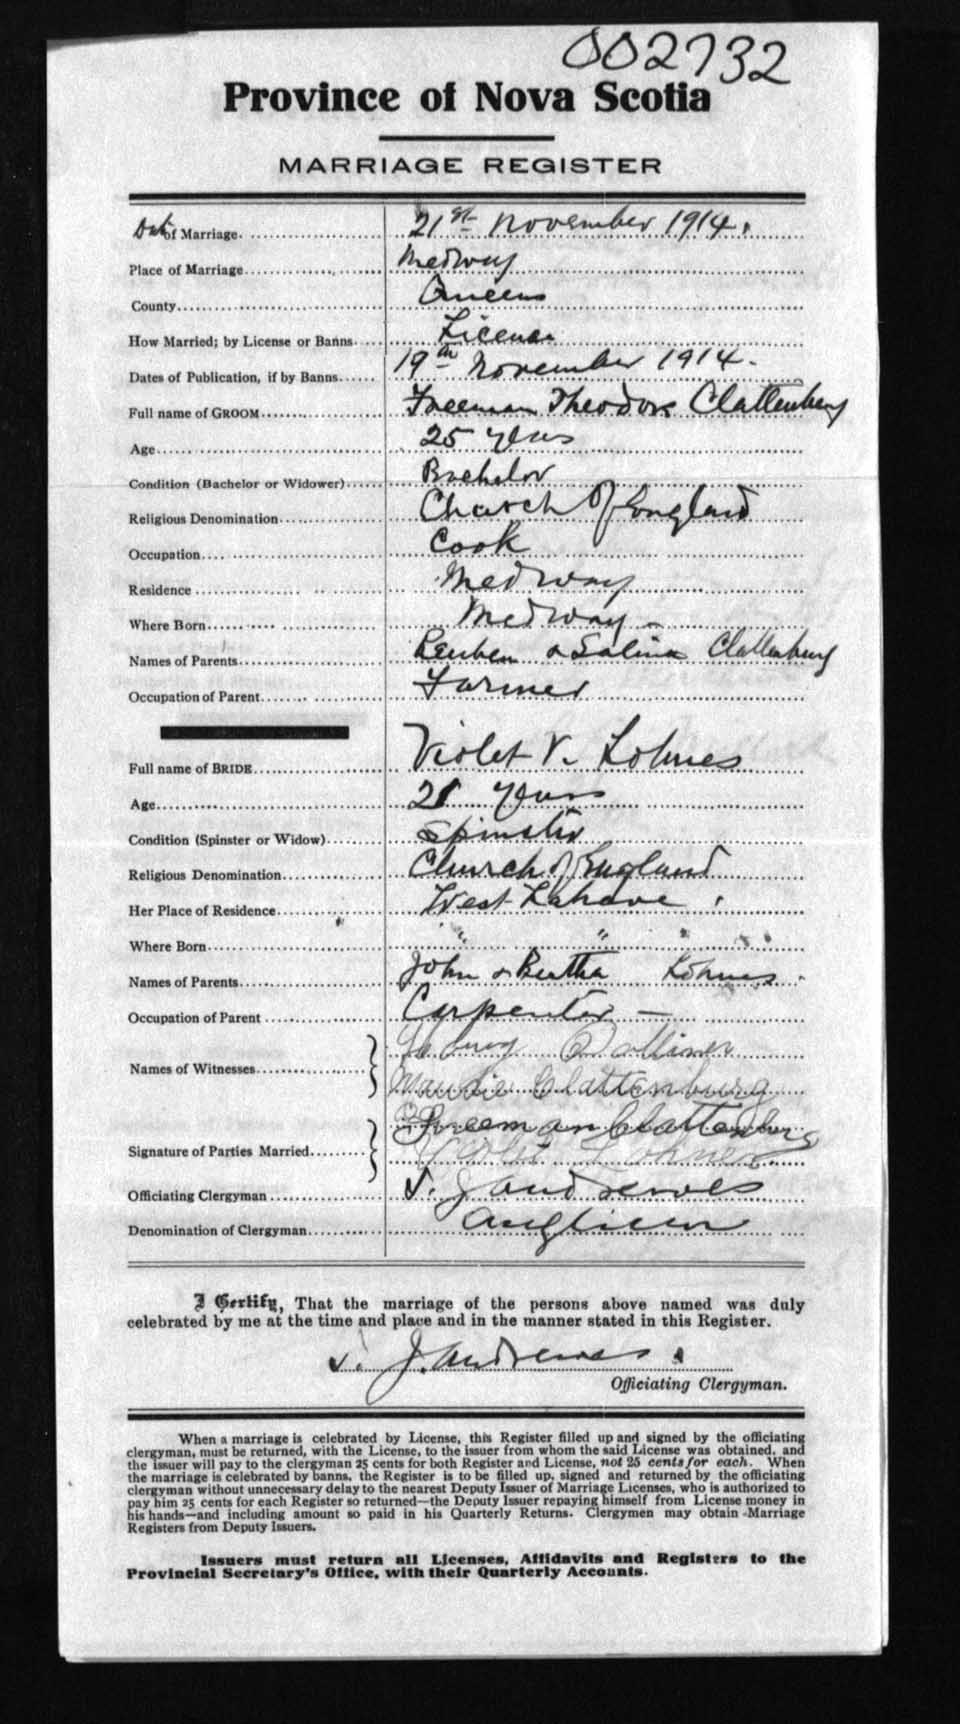 002732
Province of Nova Scotia
MARRIAGE REGISTER
Date of Marriage 21st November 1914.
Place of Marriage Medway
County Queens
How Married; by License or Banns License
Dates of Publication, if by Banns 19th November 1914.
Full name of GROOM Freeman Theodore Clattenburg
Age 25 years
Condition (Bachelor or Widower) Bachelor
Religious Denomination Church of England
Occupation Cook
Residence Medway
Where Born Medway
Names of Parents Reuben & Salina Clattenburg
Occupation of Parent Farmer
Full name of BRIDE Violet V. Lohnes
Age 21 years
Condition (Spinster or Widow) Spinster
Religious Denomination Church of England
Her Place of Residence West Lahave
Where Born " " "
Names of Parents John & Bertha Lohnes
Occupation of Parent Carpenter —
Names of Witnesses
Clattenburg
Signature of Parties Married Freeman Clattenburg
Violet Lohnes
Officiating Clergyman S. J. Andrewes
Denomination of Clergyman Anglican
I Certify, That the marriage of the persons above named was duly
celebrated by me at the time and place and in the manner stated in this Register.
S. J. Andrewes
Officiating Clergyman.
When a marriage is celebrated by License, this Register filled up and signed by the officiating
clergyman, must be returned, with the License, to the issuer from whom the said License was obtained, and
the issuer will pay to the clergyman 25 cents for both Register and License, not 25 cents for each. When
the marriage is celebrated by banns, the Register is to be filled up, signed and returned by the officiating
clergyman without unnecessary delay to the nearest Deputy Issuer of Marriage Licenses, who is authorized to
pay him 25 cents for each Register so returned—the Deputy Issuer repaying himself from License money in
his hands—and including amount so paid in his Quarterly Returns. Clergymen may obtain Marriage
Registers from Deputy Issuers.
Issuers must return all Licenses, Affidavits and Registers to the
Provincial Secretary's Office, with their Quarterly Accounts.